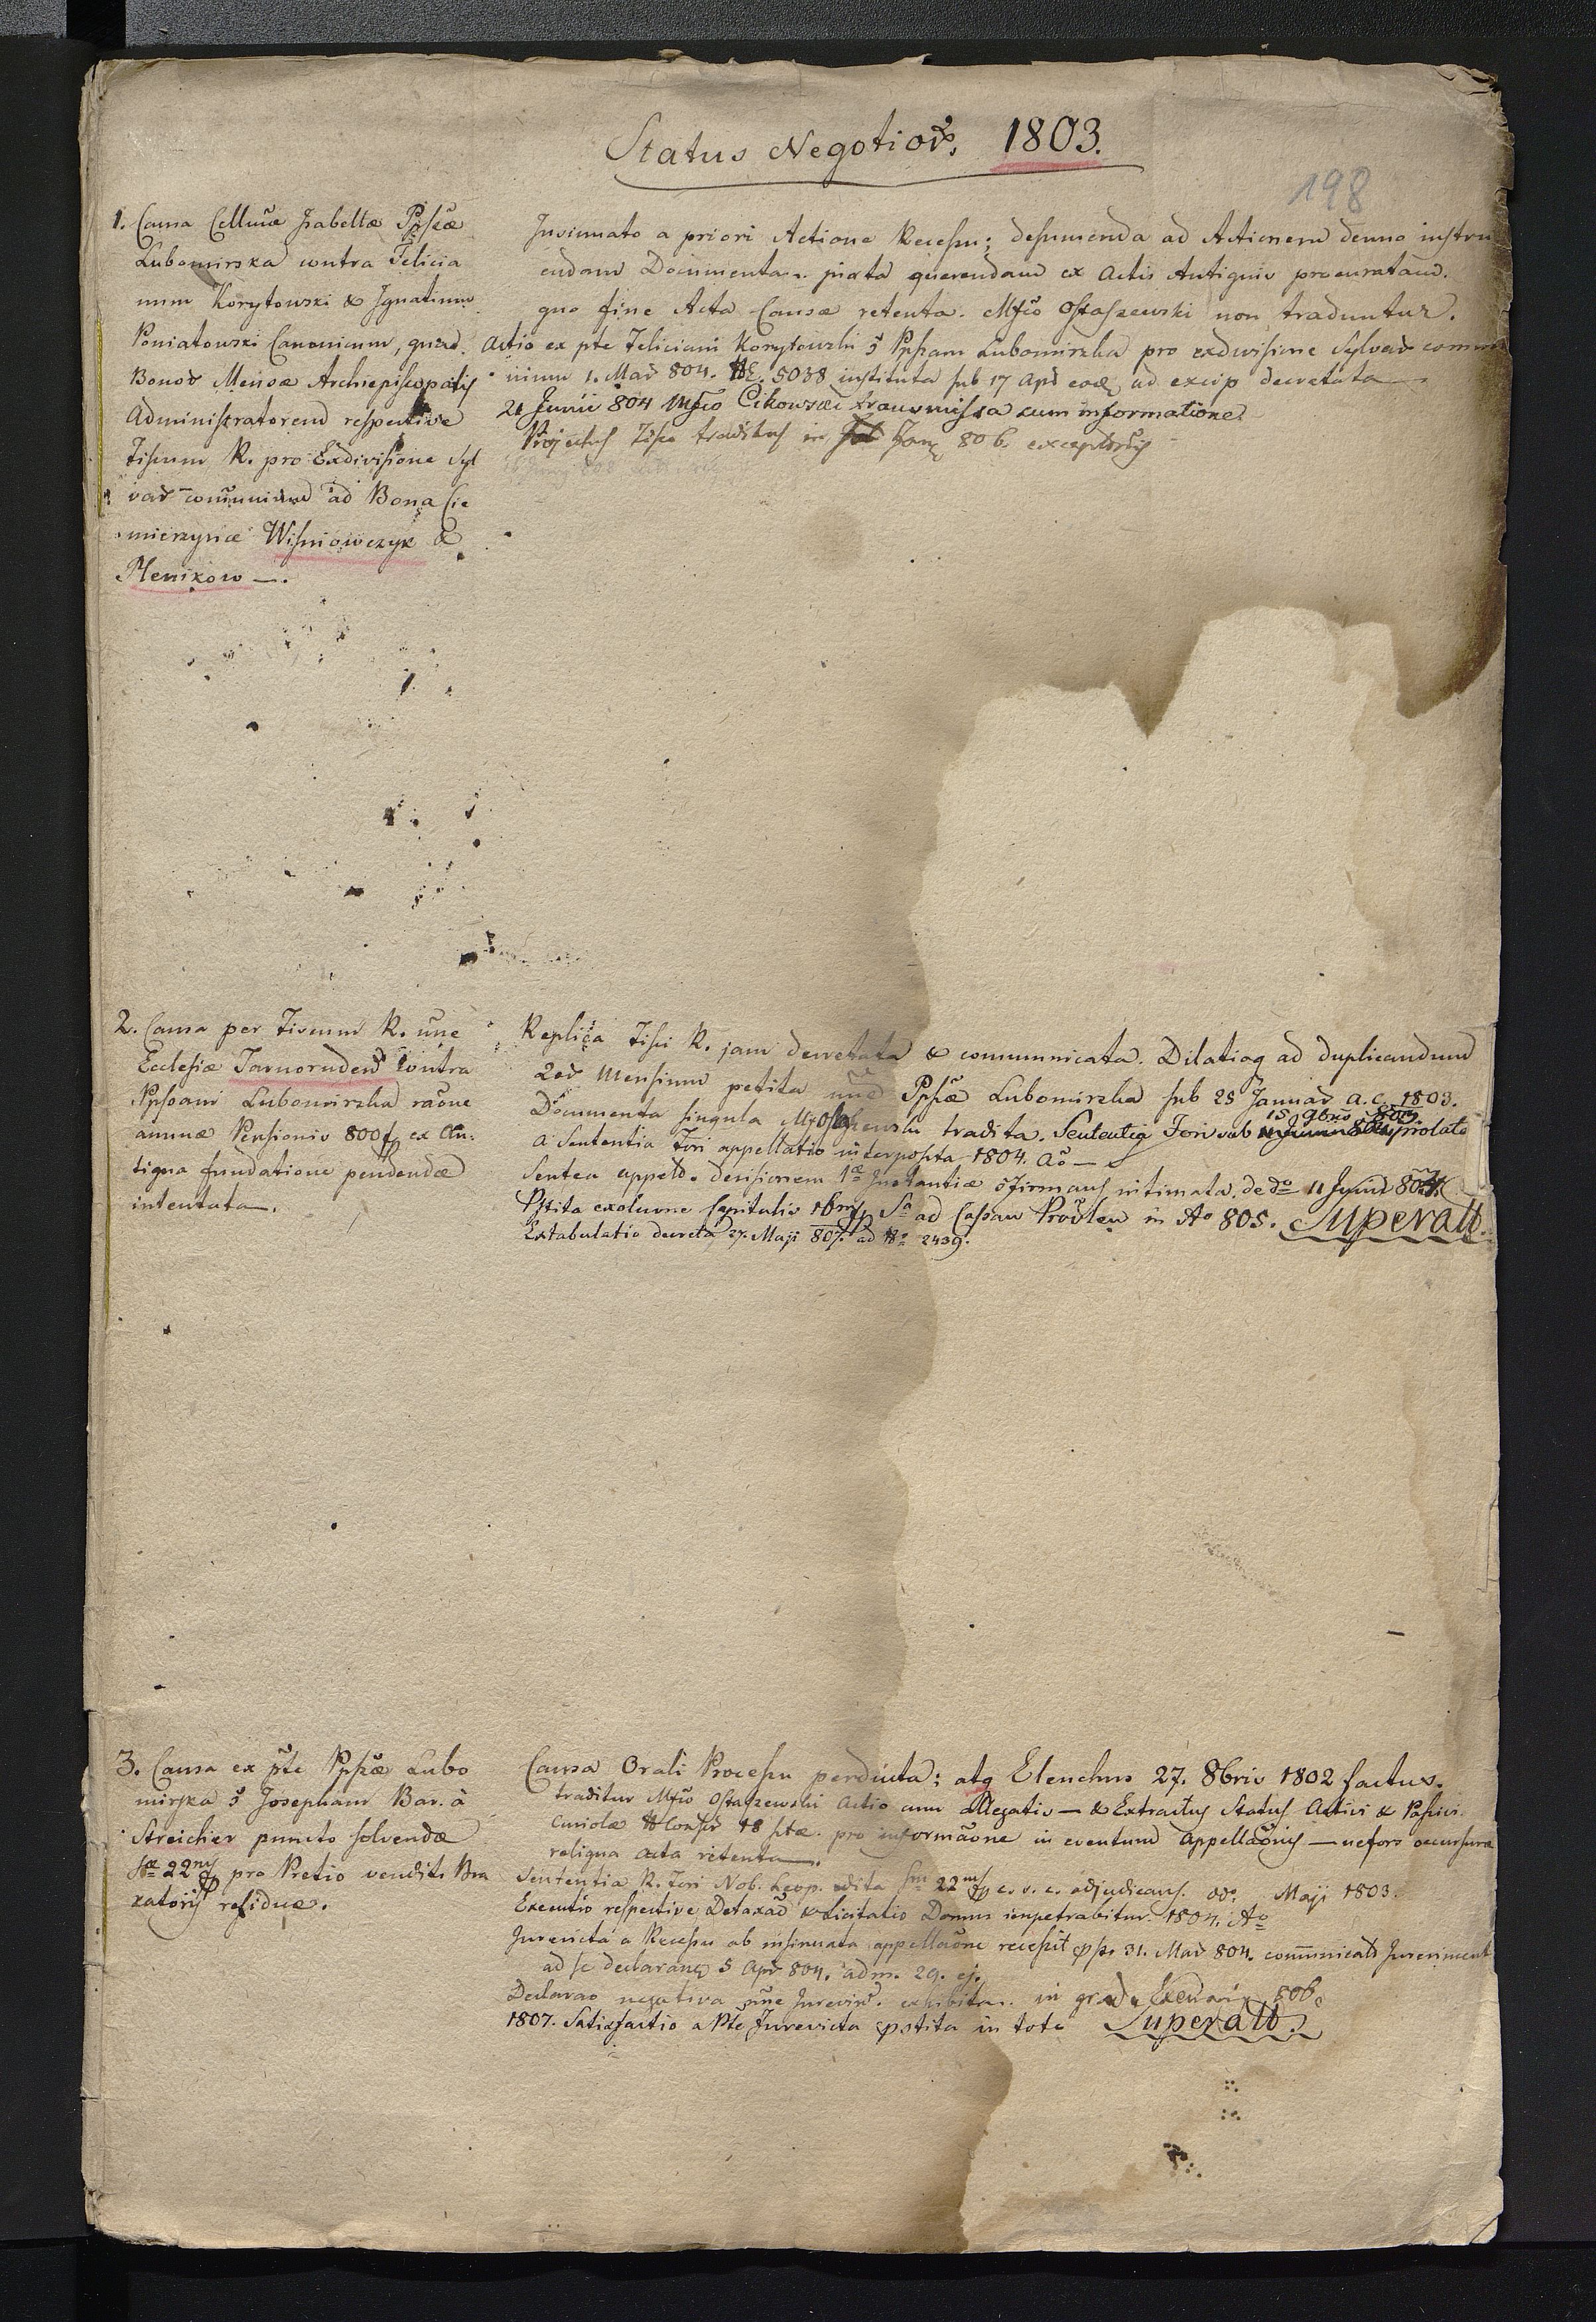 Status Negotior. 1803.
198
1. Causa Cellmae Isabellae Ppssae
Lubomirska contra Felicia
num Korytowski & Ignatium
Poniatowski Canonicum, quad.
Bonor Mensae Archiepiscopalis
Administratorem respective
Fiscum R. pro Exdivisione Syl
var communium ad Bona Cie
mierzynce Wisniowczyk &
Plenikow —.
Insinuato a priori Actione Recessu; desumenda ad Actionem denuo instru
endam Documenta. juxta querendam ex Actis Antiquis procuratam.
quo fine Acta Causae retenta. Mfco Ostaszewski non traduntur.
Actio ex pte Feliciani Korytowski c Ppssam Lubomirska pro exdivisione Sylvar commu
nium 1. Mar 804. NE. 5038 instituta sub 17 Apr ead ad excip decretata
21 Junii 804 Mfco Cikowski transmissa cum informatione
Projectus Fisco traditus in Janr 806. exceptionis
2. Causa per Fiscum R. nne
Ecclesiae Tarnoruden contra
Ppssam Lubomirska raone
annuae Pensionis 800 f ex An-
tiqua fundatione pendendae
intentata.
Replica Fisci R. jam decretata & communicata. Dilatioq ad duplicandum
2or Mensium petita nne Ppssae Lubomirska sub 28 Januar a. c. 1803.
Documenta singula M Ostaszewski tradita. Sententia Fori sub 15 9bris 803 prolata
a Sententia Fori appellatio interposita 1804. Ao —
Senten appell. decisionem 1ae Instantiae cfirmans intimata de do 11 Junii 804
Pstita exolutione Capitalis 16m f Sa ad Cassam Provlem in Ao 805. Superatt.
Extabulatio decreta 27. Maji 807. ad No 2439.
3. Causa ex pte Ppssae Lubo
mirska c Josepham Bar. à
Streicher puncto solvendae
Sae 22m f pro Pretio venditi Bra
xatorij residuae.
Causa Orali Processu perducta; atq Elenchus 27. 8bris 1802 factus.
traditur Mfco Ostaszewski Actio cum Allegatis — & Extractus Status Activi & Passivi
Curiolae N Conscr 18 sitae. pro informaone in eventum Appellaonis — nefors occursurae
reliqua acta retenta —.
Sententia R. Fori Nob. Leop. edita Sm 22m f c. s. c. adjudicans. ddo. Maji 1803.
Executio respective Detaxao & Licitatio Domus impetrabitur. 1804. Ao
Jurevicta a Recessu ab insinuata appellaone recessit pps. 31. Mar 804. communicato Jurevincent
ad se declarand 5 Apr 804. adm. 29. ej.
Declarao negativa nne Jurevinc. exhibita. in gradu Execuonis 806.
1807. Satisfactio a Pte Jurevicta pstita in toto Superatt.